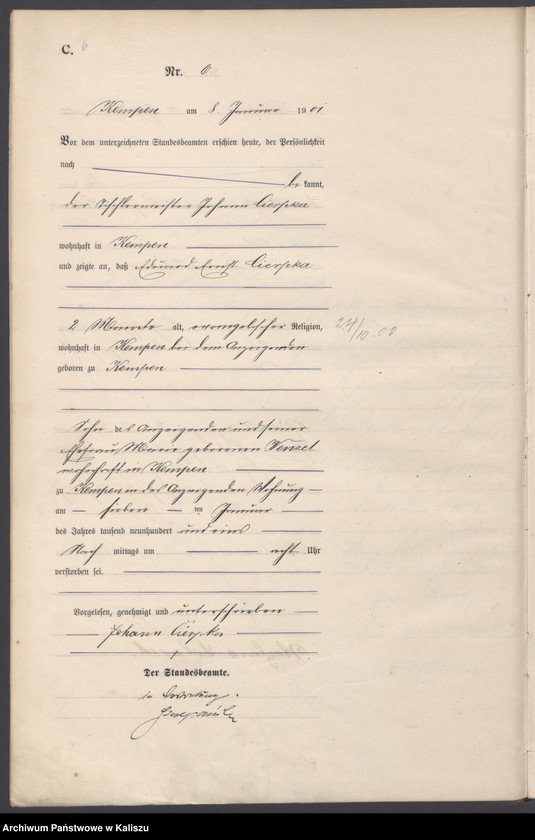 C. 6
Nr. 6
Kempen am 8. Januar 1901
Vor dem unterzeichneten Standesbeamten erschien heute, der Persönlichkeit
nach
be kannt,
der Tischlermeister Johann Cierpka
wohnhaft in Kempen
und zeigte an, daß Eduard Ernst Cierpka
2 Monate alt, evangelischer Religion,
24/10.00
wohnhaft in Kempen bei dem Anzeigenden
geboren zu Kempen
Sohn des Anzeigenden und seiner
Ehefrau Marie geborenen Wenzel
wohnhaft in Kempen
zu Kempen in des Anzeigenden Wohnung
am sieben ten Januar
des Jahres tausend neunhundert und eins
Nach mittags um acht Uhr
verstorben sei.
Vorgelesen, genehmigt und unterschrieben
Johann Cierpka
Der Standesbeamte.
in Vertretung.
Archiwum Państwowe w Kaliszu